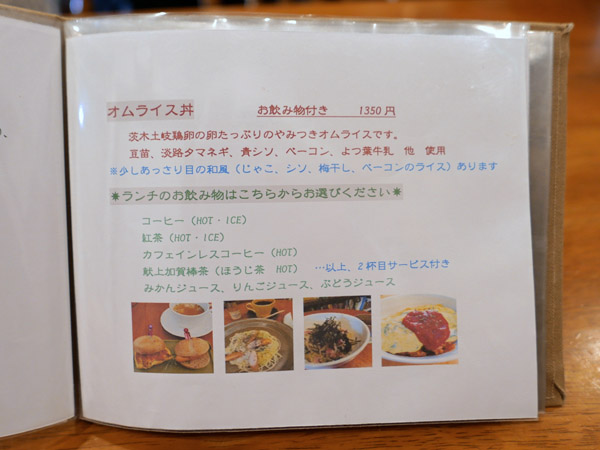 オムライス丼 お飲み物付き 1350円
茨木土岐鶏卵の卵たっぷりのやみつきオムライスです。
豆苗、淡路タマネギ、青シソ、ベーコン、よつ葉牛乳 他 使用
※少しあっさり目の和風（じゃこ、シソ、梅干し、ベーコンのライス）あります
＊ランチのお飲み物はこちらからお選びください＊
コーヒー（HOT・ICE）
紅茶（HOT・ICE）
カフェインレスコーヒー（HOT）
献上加賀棒茶（ほうじ茶 HOT） …以上、2杯目サービス付き
みかんジュース、りんごジュース、ぶどうジュース